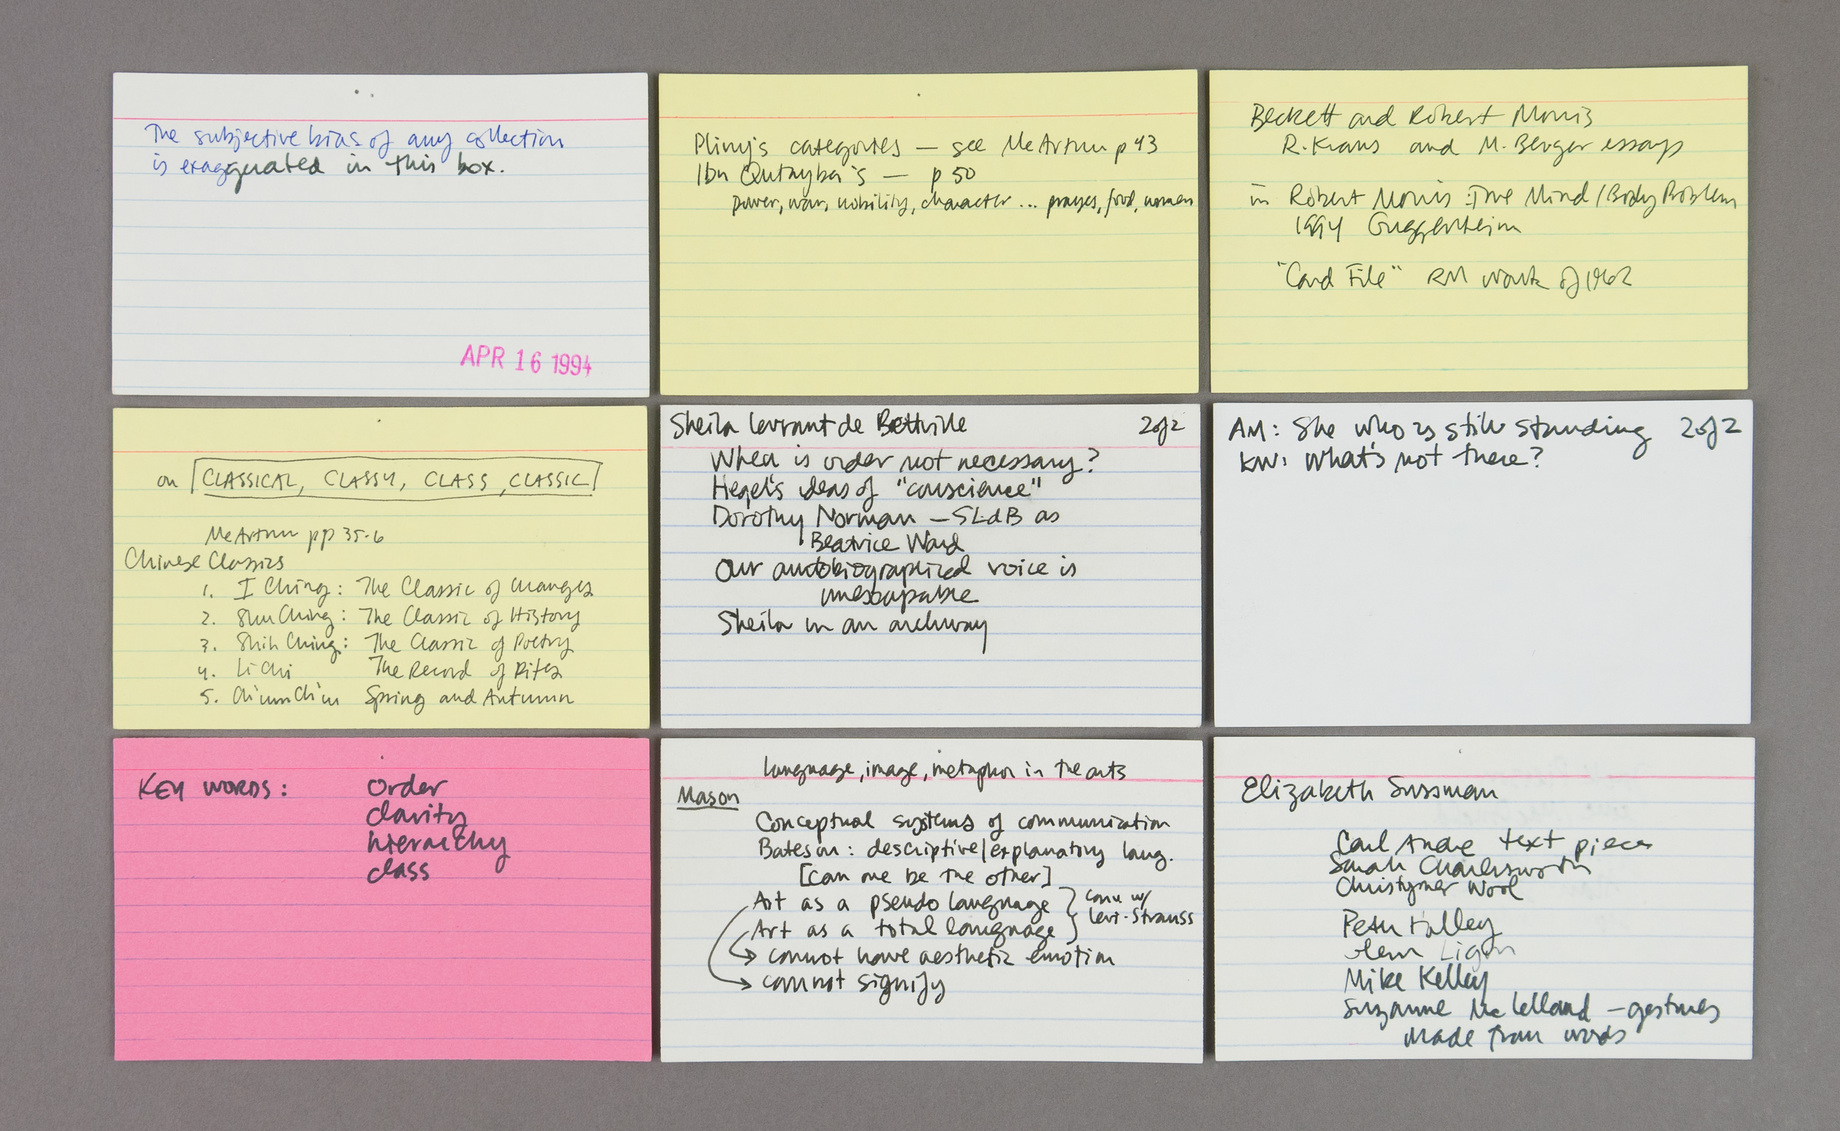 The subjective bias of any collection
is exaggerated in this box.
APR 16 1994
Pliny's categories — see McArthur p 43
Ibn Qutayba's — p 50
power, war, nobility, character ... prayer, food, women
Beckett and Robert Morris
R. Krauss and M. Berger essays
in Robert Morris: The Mind/Body Problem
1994 Guggenheim
"Card File" RM work of 1962
on CLASSICAL, CLASSY, CLASS, CLASSIC
McArthur pp 35-6
Chinese Classics
1. I Ching: The Classic of Changes
2. Shu Ching: The Classic of History
3. Shih Ching: The Classic of Poetry
4. Li Chi The Record of Rites
5. Ch'un Ch'iu Spring and Autumn
Sheila Levrant de Bretteville 2 of 2
When is order not necessary?
Hegel's ideas of "conscience"
Dorothy Norman — SLdB as
Beatrice Ward
Our autobiographical voice is
inescapable
Sheila in an archway
AM: She who is still standing 2 of 2
KW: What's not there?
KEY WORDS: order
clarity
hierarchy
class
language, image, metaphor in the arts
Mason
Conceptual systems of communication
Bateson: descriptive/explanatory lang.
[can one be the other]
Art as a pseudo language } conv w/
Levi-Strauss
Art as a total language
cannot have aesthetic emotion
cannot signify
Elizabeth Sussman
Carl Andre text pieces
Sarah Charlesworth
Christopher Wool
Peter Halley
Glenn Ligon
Mike Kelley
Suzanne McClelland — gestures
made from words